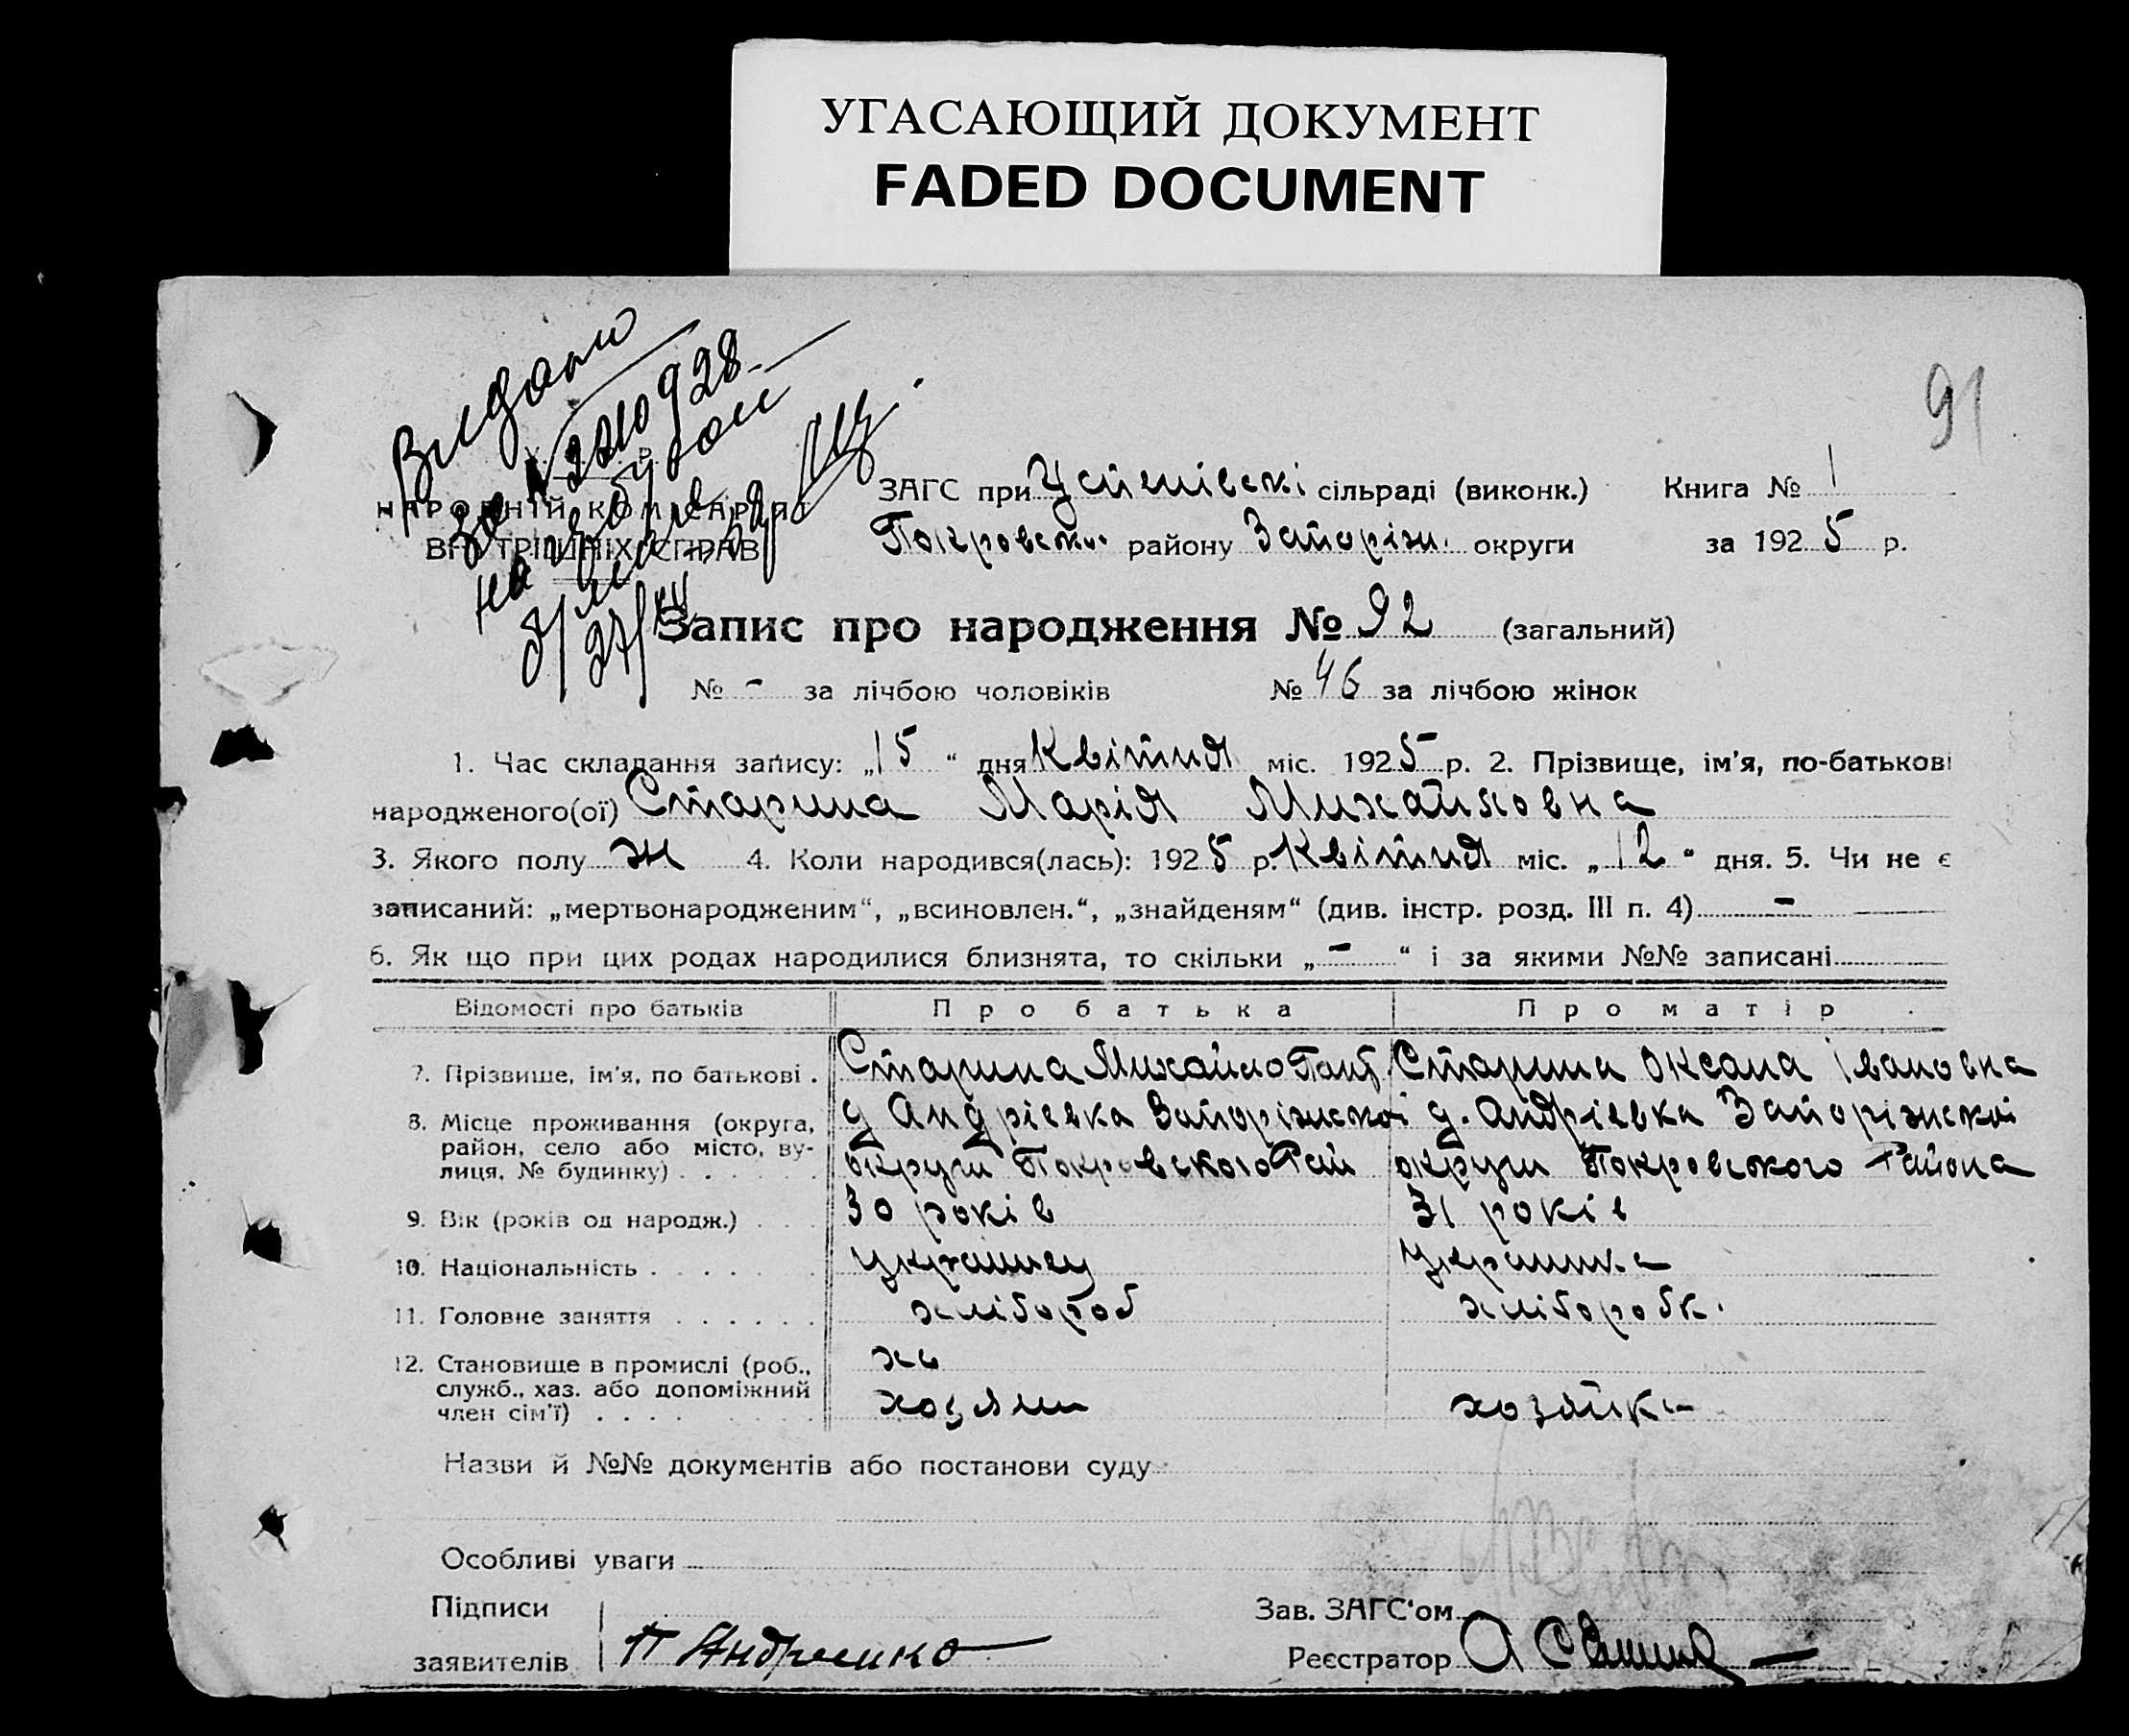 УГАСАЮЩИЙ ДОКУМЕНТ
FADED DOCUMENT
91
Видано
928
НАРОДНІЙ КОМІСАРІЯТ
ВНУТРІШНІХ СПРАВ
ЗАГС при Успенівскі сільраді (виконк.) Книга № 1
Покровськ. району Запоріж. округи за 1925 р.
Запис про народження № 92 (загальний)
№ - за лічбою чоловіків № 46 за лічбою жінок
1. Час складання запису: „15“ дня Квітня міс. 1925 р. 2. Прізвище, ім'я, по-батькові
народженого(ої) Старина Марія Михайловна
3. Якого полу ж 4. Коли народився(лась): 1925 р. Квітня міс. „12“ дня. 5. Чи не є
записаний: „мертвонародженим“, „всиновлен.“, „знайденям“ (див. інстр. розд. III п. 4) -
6. Як що при цих родах народилися близнята, то скільки „-“ і за якими №№ записані
Відомості про батьків Про батька Про матір
7. Прізвище, ім'я, по батькові . Старина Михайло Старина Оксана Івановна
8. Місце проживання (округа, д Андрієвка Запоріжскої д. Андрієвка Запоріжскої
район, село або місто, ву-
лиця, № будинку) . . . . . . округи Покровського Рай округи Покровського Района
9. Вік (років од народж.) . . . 30 років 31 років
10. Національність . . . . . . українец українка
11. Головне заняття . . . . . . хлібороб хліборобк.
12. Становище в промислі (роб., хо
служб., хаз. або допоміжний хозяин хозяйка
член сім'ї) . . . .
Назви й №№ документів або постанови суду
Особливі уваги
Підписи Зав. ЗАГС'ом
заявителів П Андреенко Реєстратор А